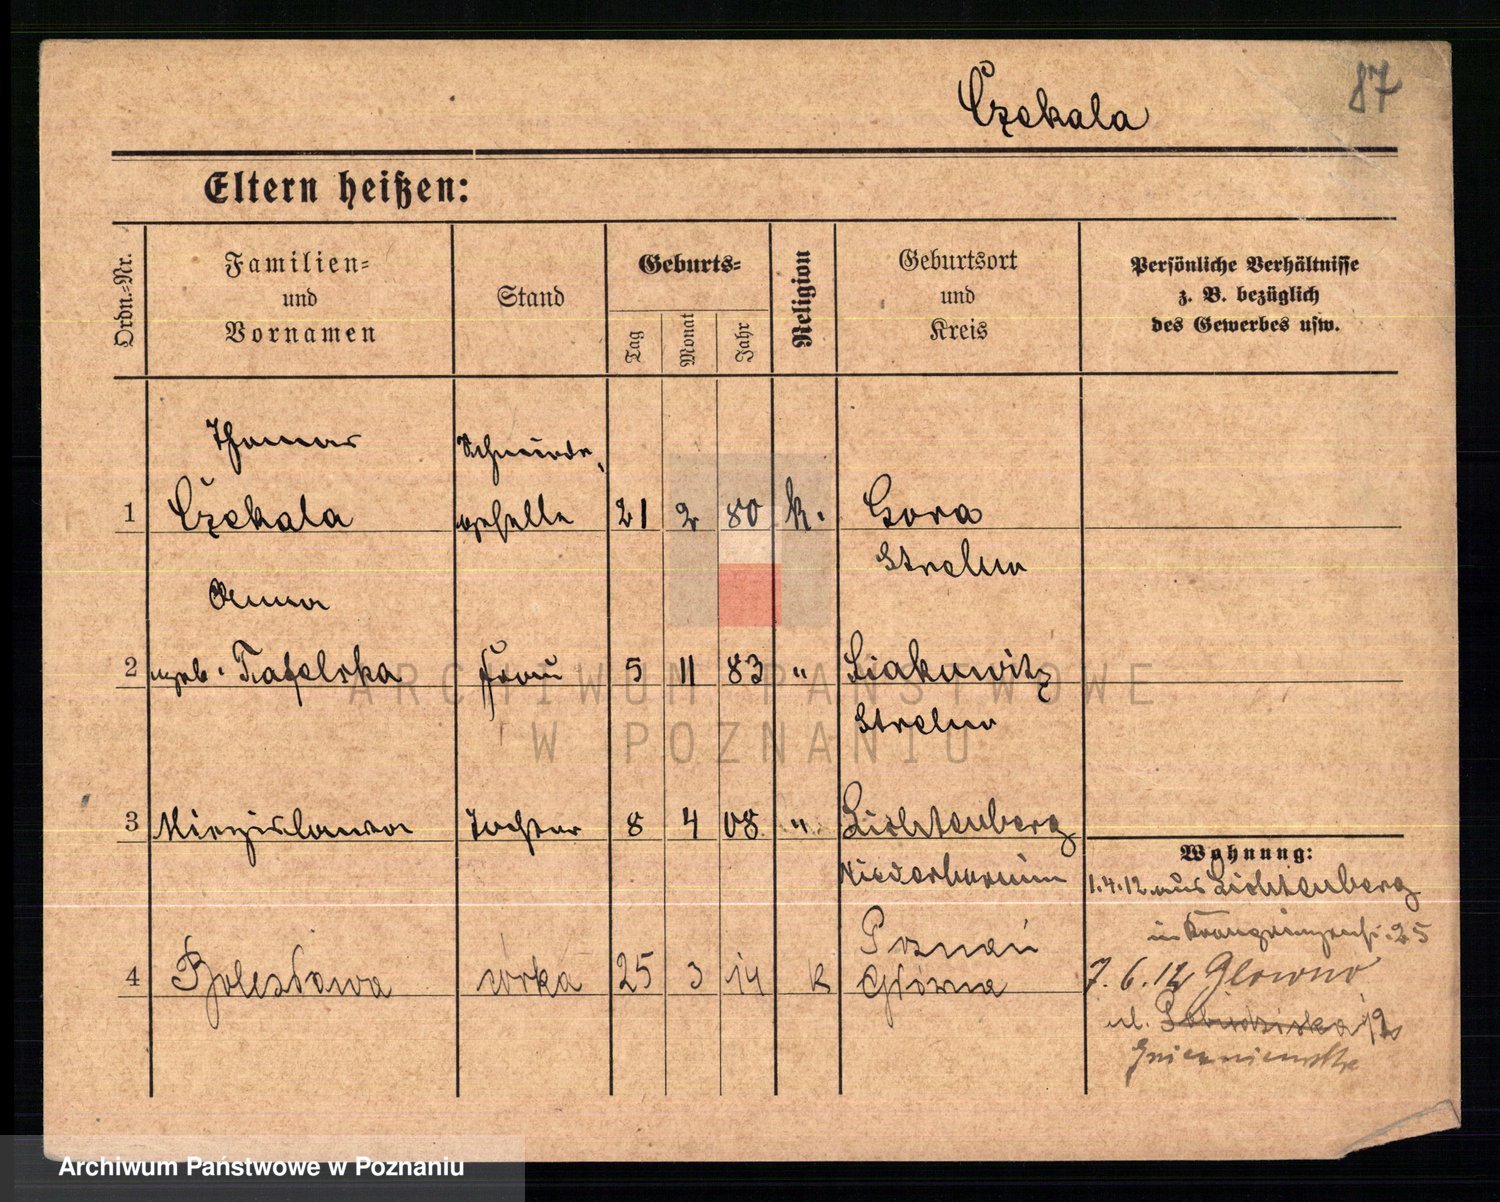 Czekala
87
Eltern heißen:
Ordn.=Nr.
Familien=
und
Vornamen
Stand
Geburts=
Tag
Monat
Jahr
Religion
Geburtsort
und
Kreis
Persönliche Verhältnisse
z. B. bezüglich
des Gewerbes usw.
Thomas Schneider
1 Czekala geselle 21 2 80 k. Gora
Strelno
Anna
2 geb. Frau 5 11 83 " 
Strelno
3 Mieczislawa Tochter 8 4 08 " Lichtenberg
Niederbarnim
Wohnung:
1.4.12 aus Lichtenberg
in 25
Poznań
4 Bolesława córka 25 3 14 k Główna
7.6.12 Glowno
ul. 12
ARCHIWUM PAŃSTWOWE
W POZNANIU
Archiwum Państwowe w Poznaniu